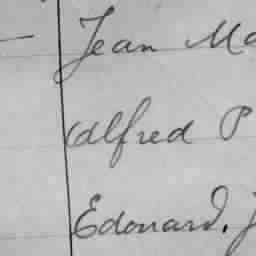 Jean Ma
Alfred P
Edouard. J